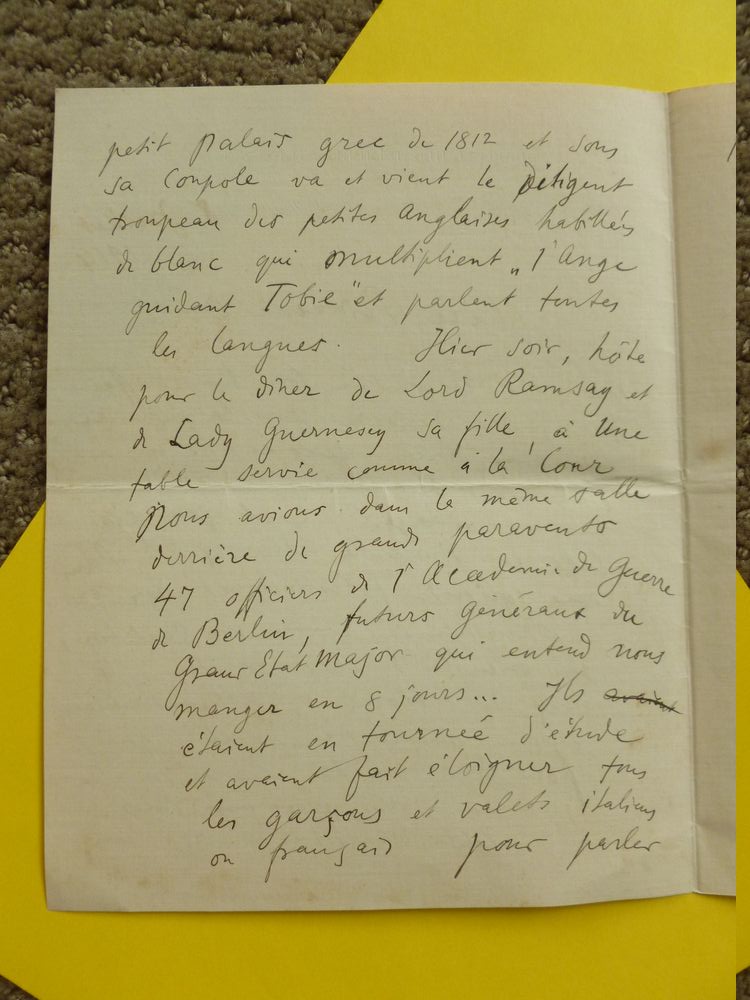 petit palais grec de 1812 et sous
sa Coupole va et vient le diligent
troupeau des petites Anglaises habillées
de blanc qui multiplient „l'Ange
guidant Tobie" et parlent toutes
les langues. Hier soir, hôte
pour le dîner de Lord Ramsay et
de Lady Guernesey sa fille, à une
table servie comme à la Cour
Nous avions dans la même salle
derrière de grands paravents
47 officiers de l'Academie de Guerre
de Berlin, futurs généraux du
Grand Etat Major qui entend nous
manger en 8 jours... Ils avaient
étaient en tournée d'étude
et avaient fait éloigner tous
les garçons et valets italiens
ou français pour parler